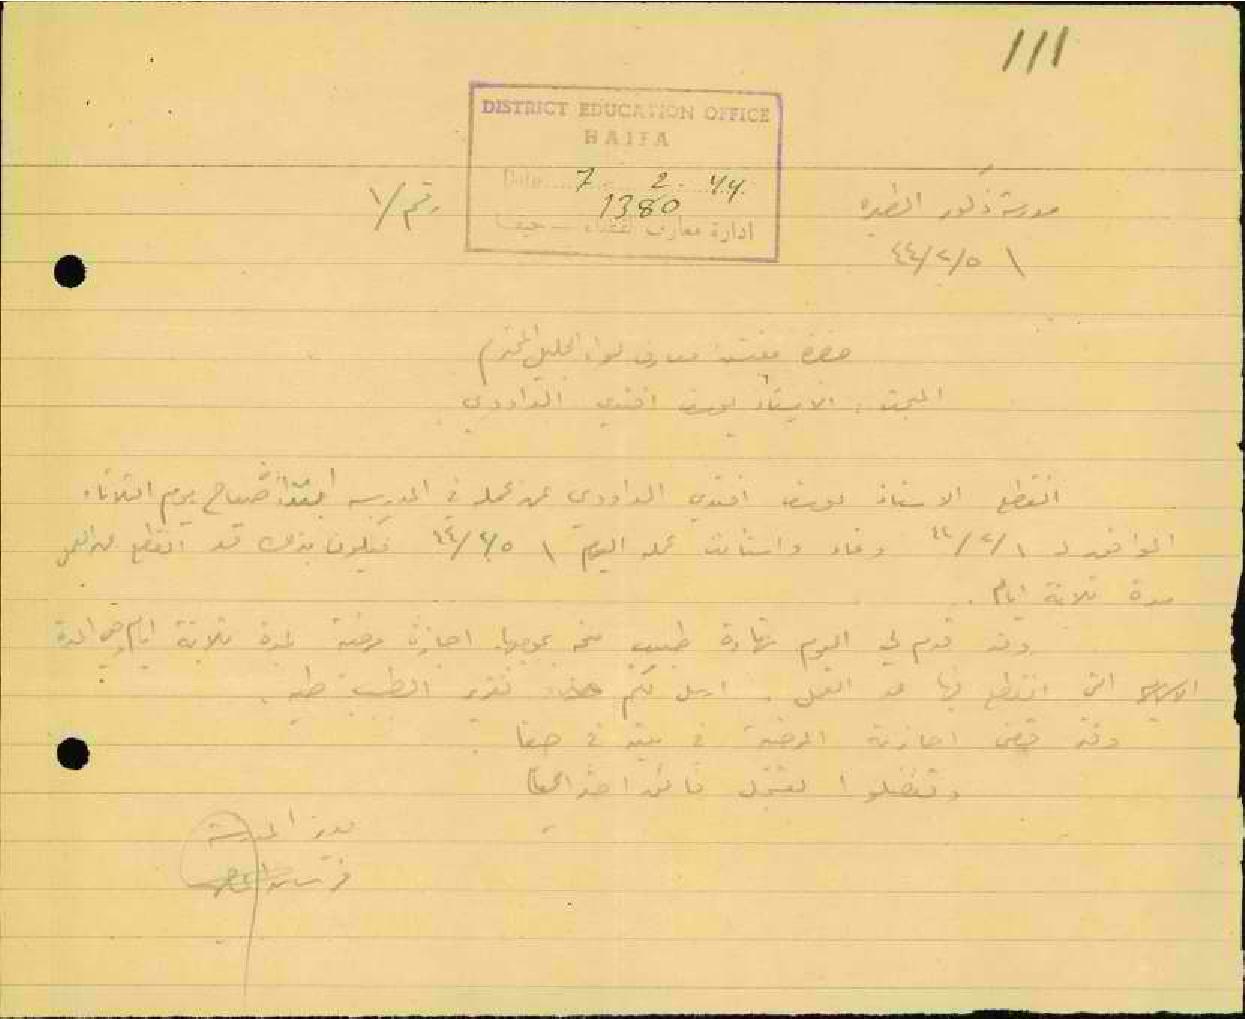 111
DISTRICT EDUCATION OFFICE
HAIFA
Date 7 2. 44.
1380
ادارة معارف القضاء — حيفا
مدرسة ذكور الطيره
رقم /١
٤٤/٢/٥ \
حضرة مفتش معارف لواء الجليل المحترم
المبحث : الاستاذ يوسف افندي الداودي
انقطع الاستاذ يوسف افندي الداودي عن عمله في المدرسه صباح يوم الثلاثاء
الموافق لـ ٤٤/٢/١ وعاد واستأنف عمله اليوم \ ٤٤/٢/٥ فيكون بذلك قد انقطع عن العمل
مدة ثلاثة ايام .
وقد قدم لي اليوم شهادة طبيب منحه بموجبها اجازة مرضية لمدة ثلاثة ايام وهي المدة
التي انقطع فيها عن العمل . ارسل لكم تقرير الطبيب طيه .
وقد قضى اجازته المرضية في بيته في حيفا .
وتفضلوا بقبول فائق احترامي
مدير المدرسة